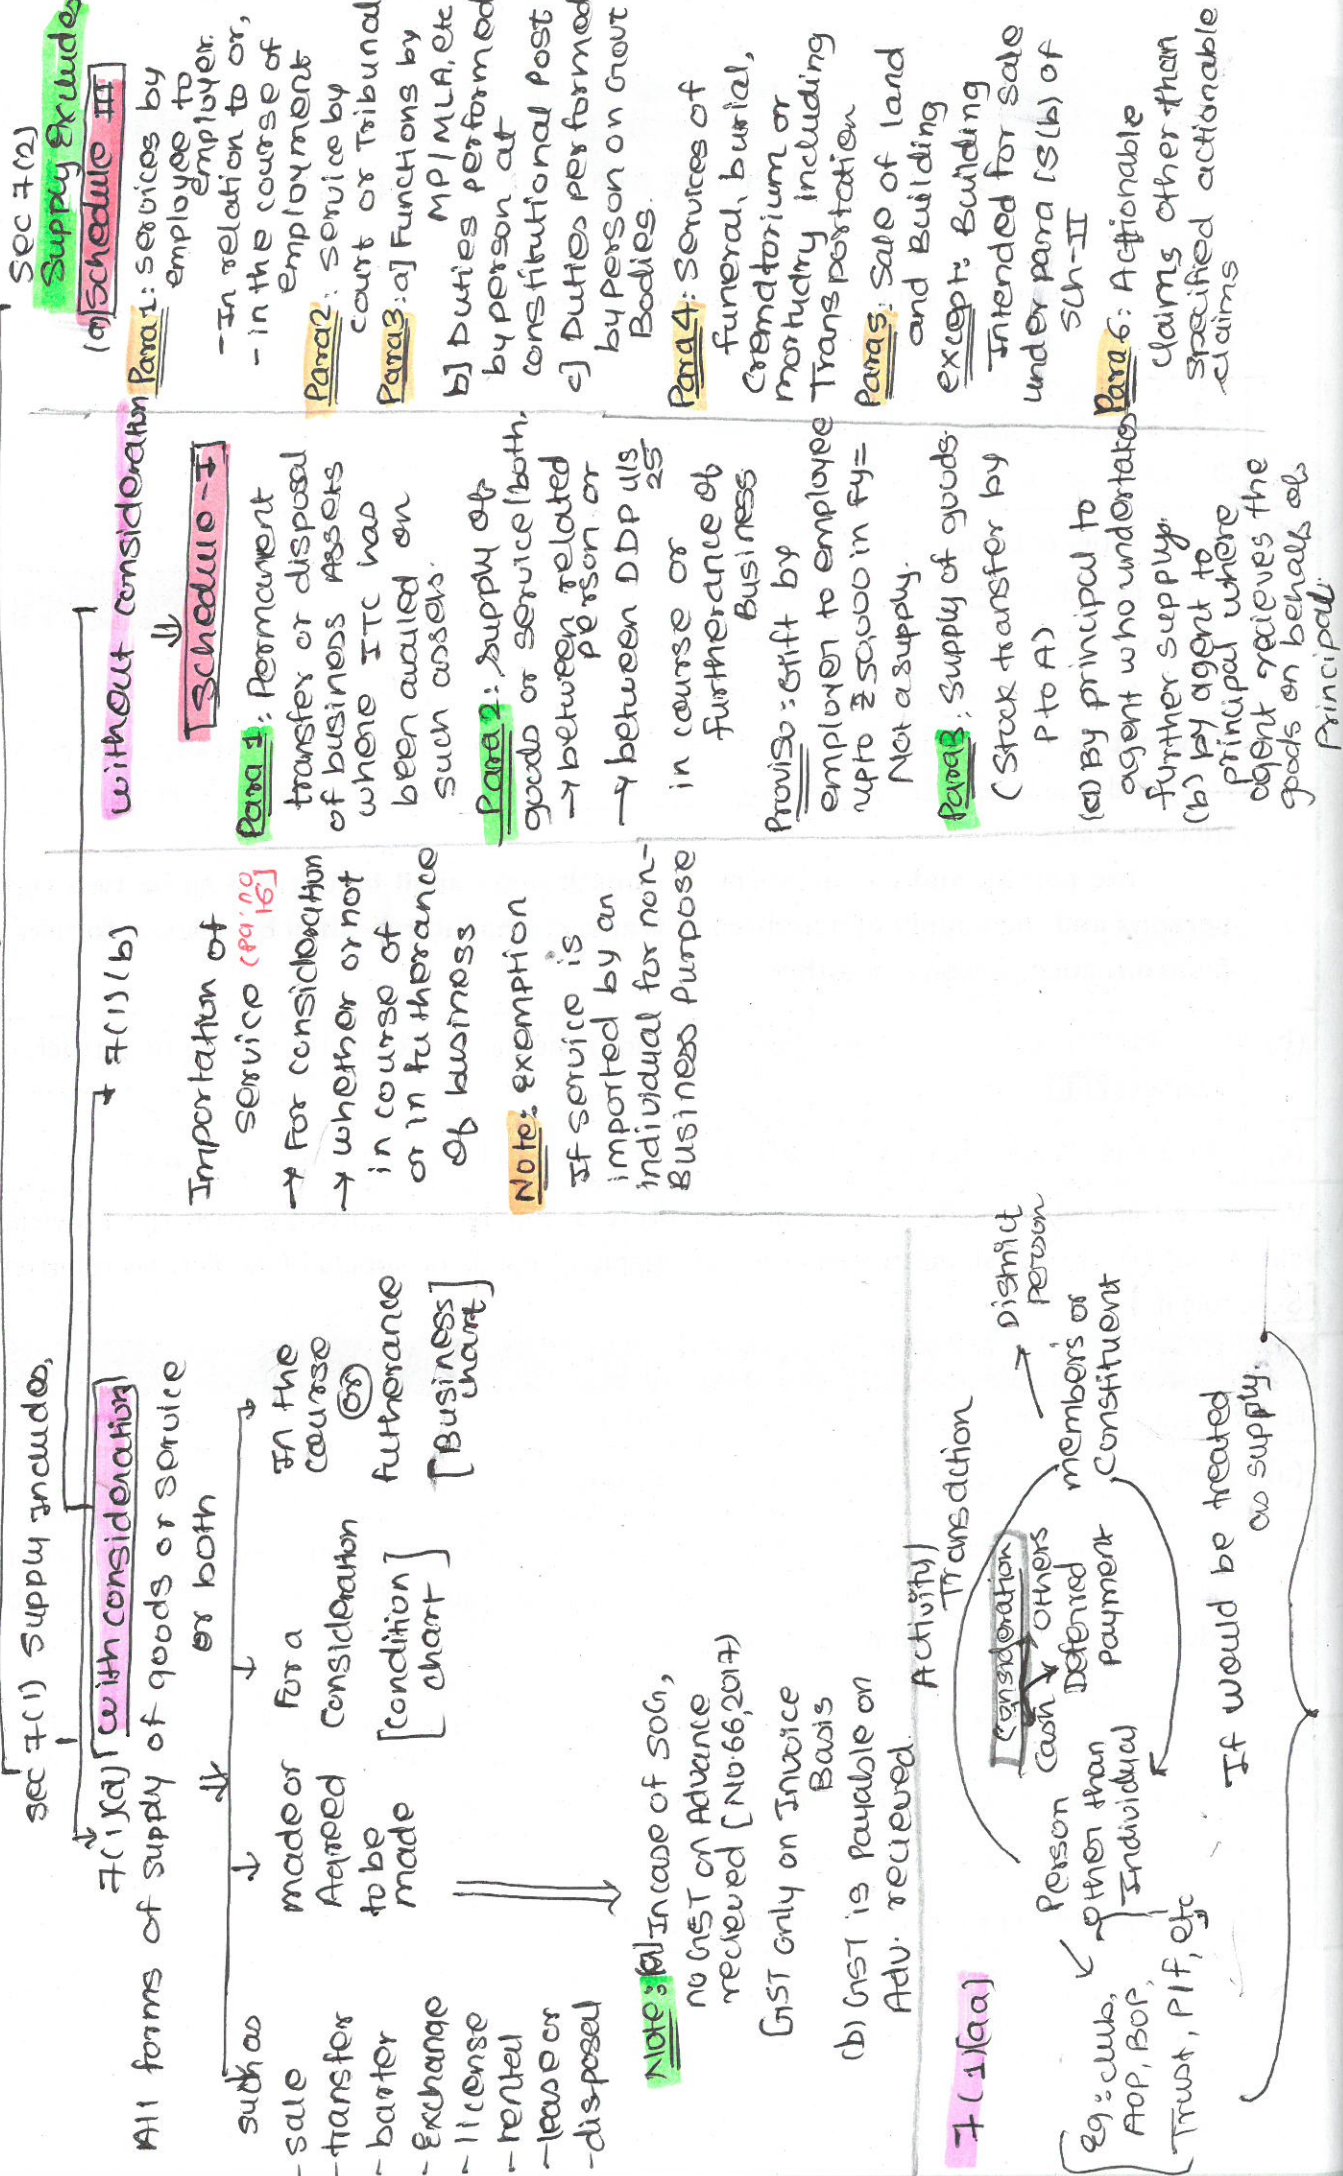 sec 7(1) supply includes,
7(1)(a) with consideration
All forms of supply of goods or service
or both
such as
- sale
- transfer
- barter
- Exchange
- license
- rental
- lease or
- disposal
made or
Agreed
to be
made
For a
Consideration
[condition
chart]
In the
course
(or)
futherance
[Business
chart]
Note: (a) Incase of SOG,
no GST on Advance
recieved [No 66, 2017]
GST only on Invoice
Basis
(b) GST is Payable on
Adv. recieved.
7(1)(aa)
Activity/
Transaction
Person
other than
Individual
Eg: club,
AOP, BOP,
Trust, P/f, etc
Consideration
Cash
others
Deferred
Payment
members or
Constituent
District
person
If would be treated
as supply.
7(1)(b)
Importation of
service (pg. no
16]
→ For consideration
→ whether or not
in course of
or in futherance
of business
Note: exemption
If service is
imported by an
individual for non-
Business Purpose
without consideration
Schedule - I
Para 1: Permanent
transfer or disposal
of business Assets
where ITC has
been availed on
such assets.
Para 2: supply of
goods or service/both.
→ between related
person or
→ between DDP u/s
25
in course or
furtherance of
Business
Proviso: Gift by
employer to employee
upto ₹50,000 in Fy =
Not a supply.
Para 3: supply of goods.
(Stock transfer by
P to A)
(a) By principal to
agent who undertakes
further supply.
(b) by agent to
principal where
agent recieves the
goods on behalf of
Principal.
Sec 7(2)
Supply Excludes
(a) Schedule III
Para 1: services by
employee to
employer.
- In relation to or,
- in the course of
employment
Para 2: service by
court or Tribunal
Para 3: a] Functions by
MP/MLA, etc
b] Duties performed
by person at
constitutional post
c] Duties performed
by person on Govt
Bodies.
Para 4: services of
funeral, burial,
crematorium or
mortuary including
Transportation
Para 5: sale of land
and Building
except: Building
Intended for sale
under para (5(b) of
Sch-II
Para 6: Actionable
claims other than
specified actionable
claims